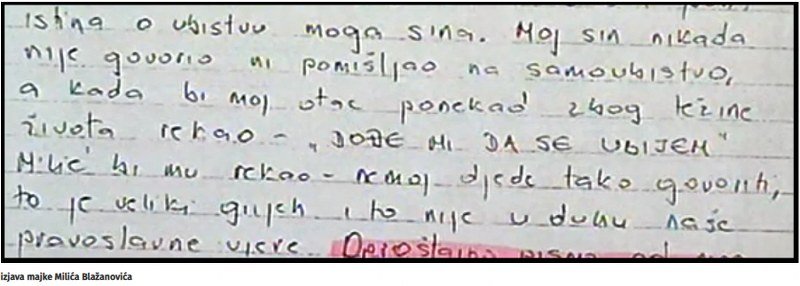 istina o ubistvu moga sina. Moj sin nikada
nije govorio ni pomišljao na samoubistvo,
a kada bi moj otac ponekad zbog težine
života rekao - "DOĐE MI DA SE UBIJEM"
Milić bi mu rekao - nemoj djede tako govoriti,
to je veliki grijeh i to nije u duhu naše
pravoslavne vjere. Oproštajno pismo
izjava majke Milića Blažanovića